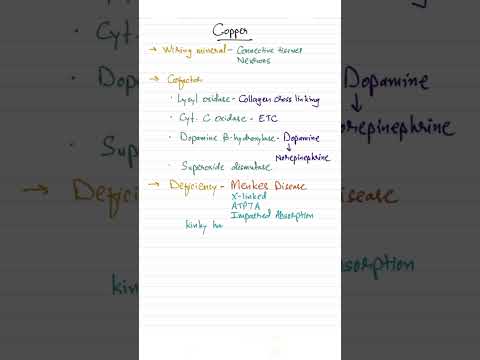 Copper
→ Wiring mineral - Connective tissues
Neurons
→ Cofactor
· Lysyl oxidase - Collagen cross linking
· Cyt. C oxidase - ETC
· Dopamine β-hydroxylase - Dopamine
↓
Norepinephrine
· Superoxide dismutase
→ Deficiency - Menkes Disease
X-linked
ATP7A
Impaired Absorption
kinky ha